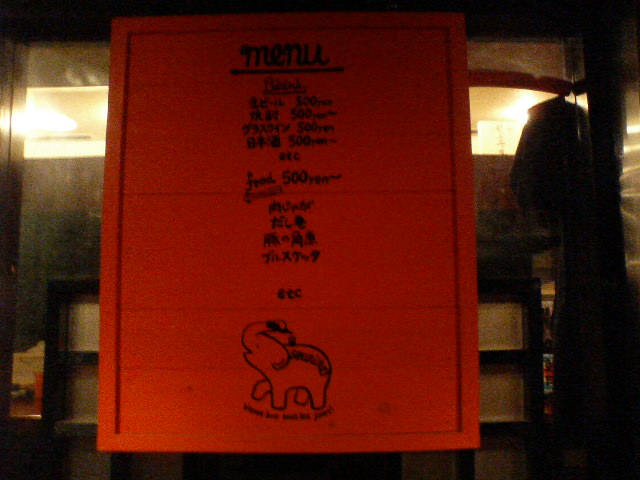 menu
Drink
生ビール 500yen
焼酎 500yen〜
グラスワイン 500yen〜
日本酒 500yen〜
etc
food 500yen〜
肉じゃが
だし巻
豚の角煮
ブルスケッタ
etc